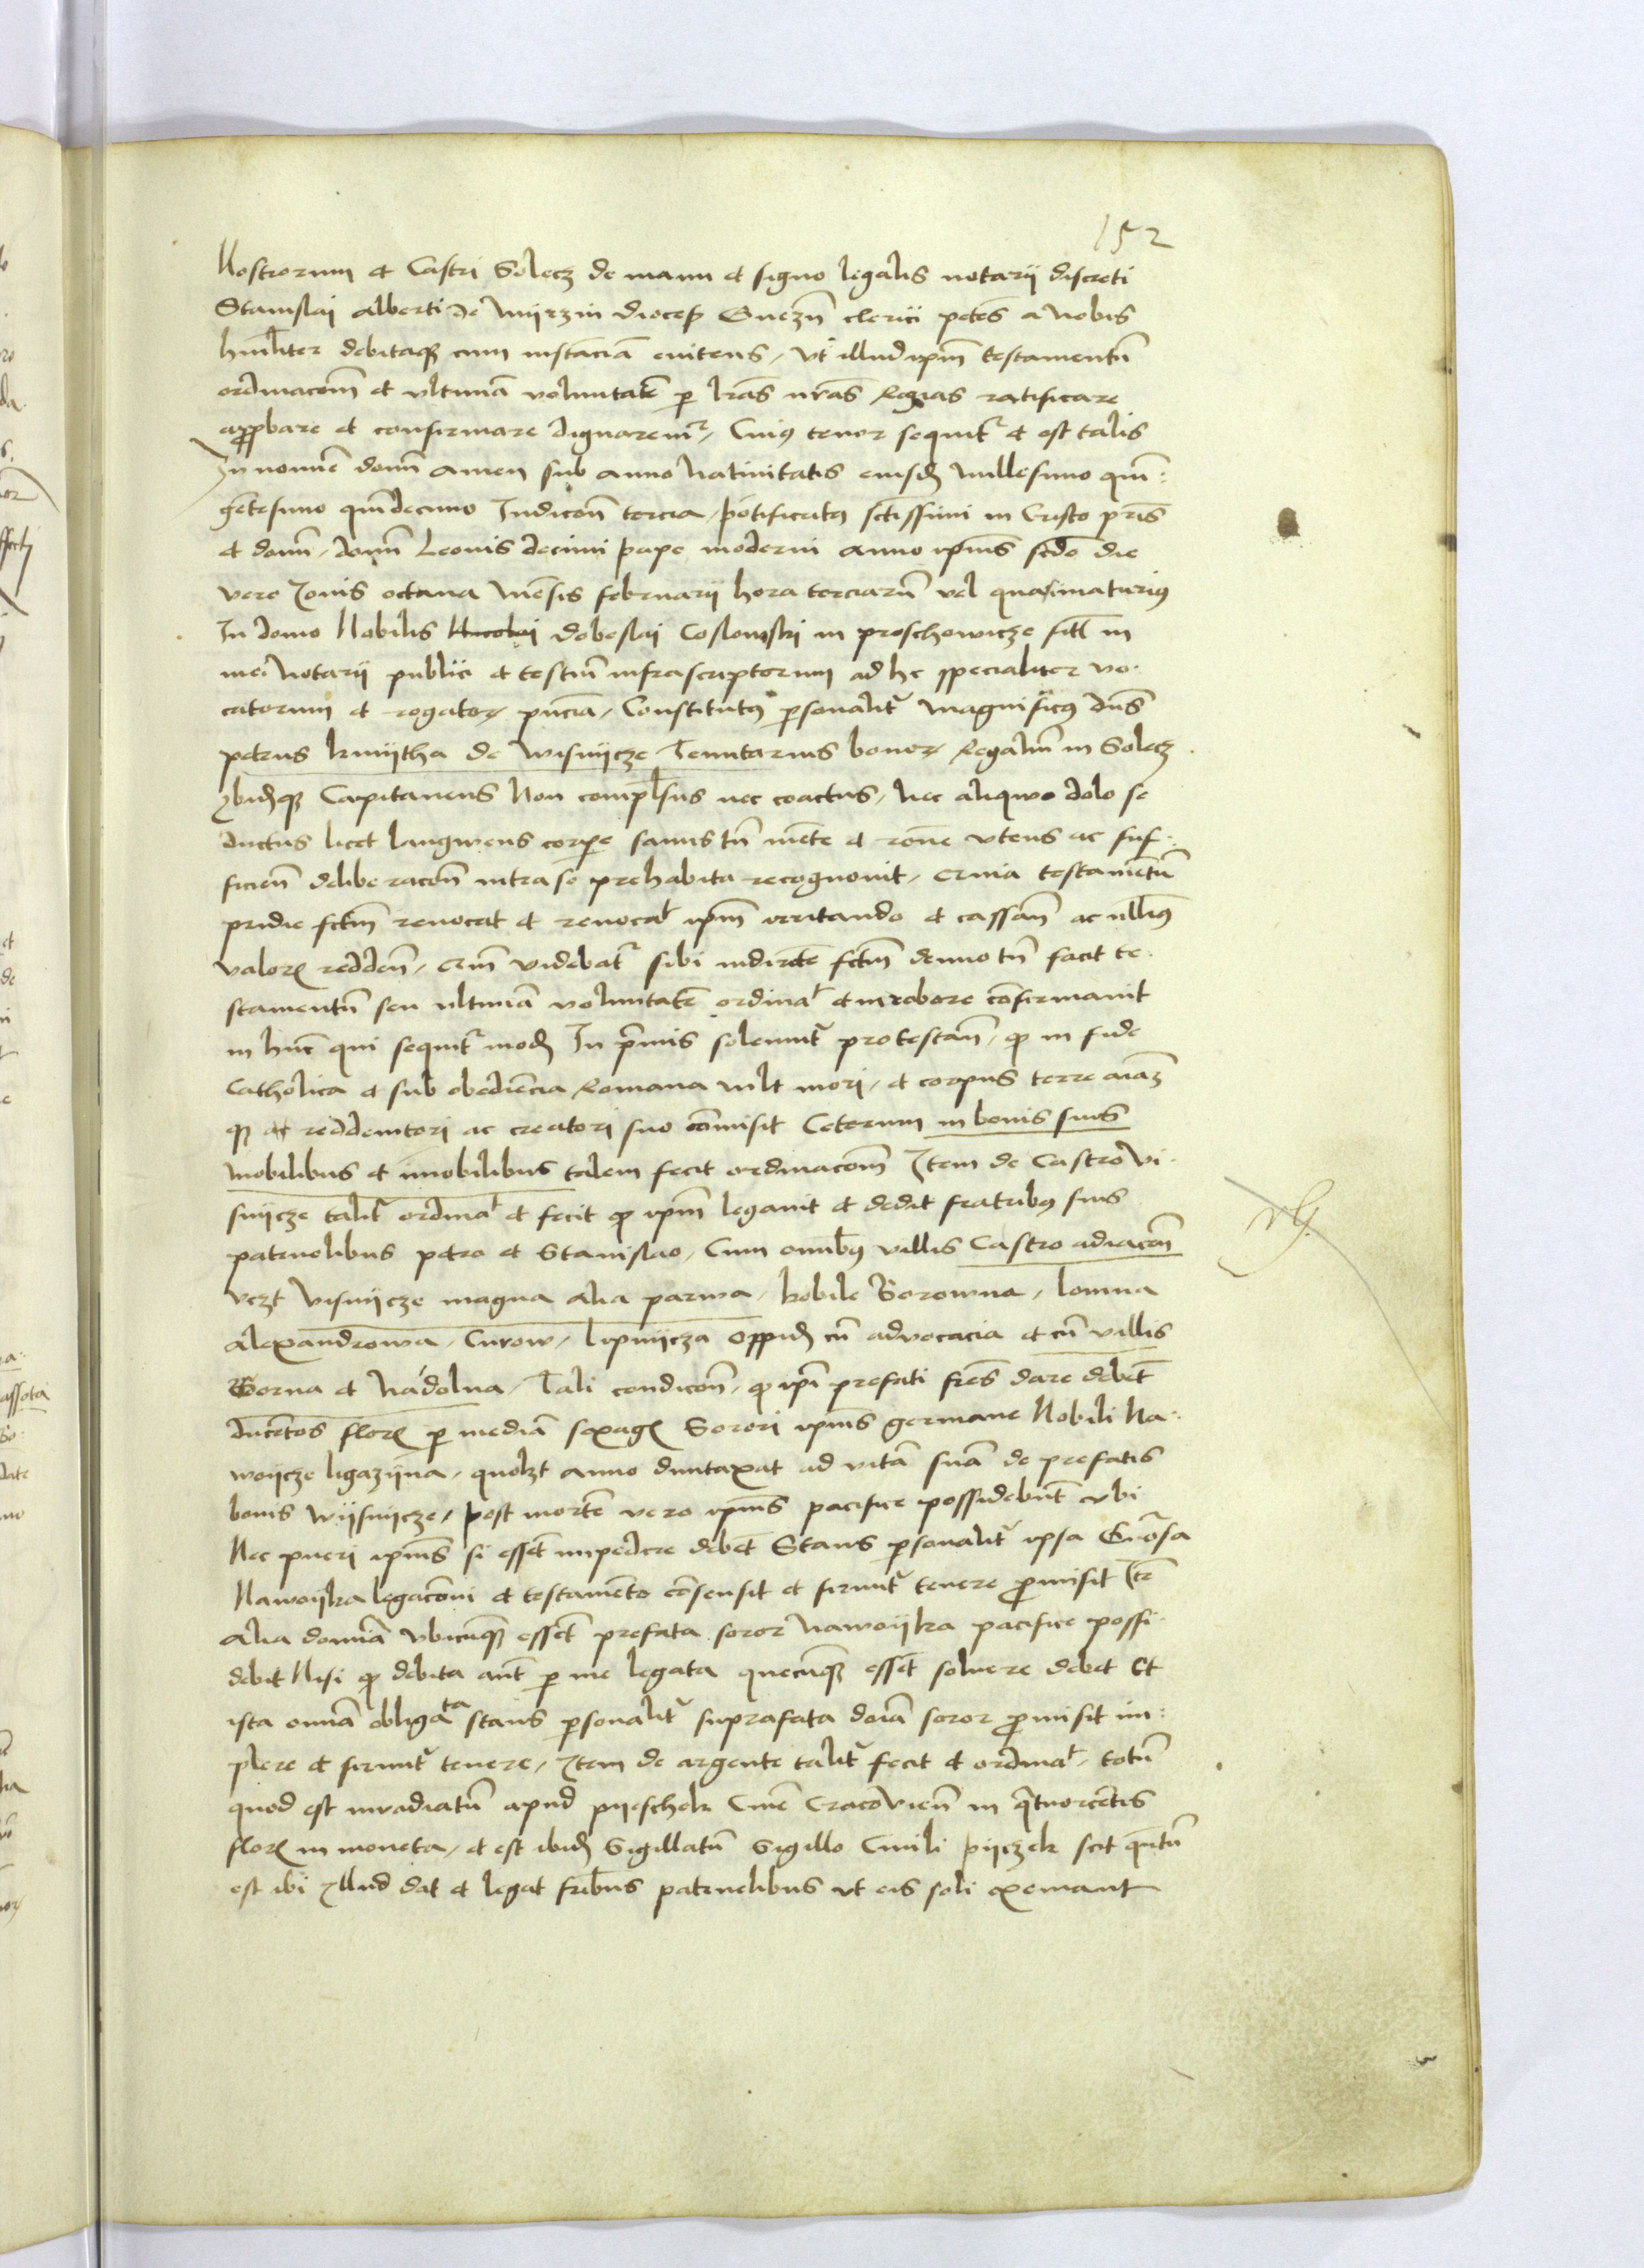 152
Nostrorum et Castri Solecz de manu et signo legalis notarii discreti
Stanislai Alberti de Miirzin dioceß Gnezn̄ clerici petēs a Nobis
humiliter debitaqꝫ cum instanciā enitens, Vt illud ipm̄ testamentū
ordinacom̄ et vltimā voluntatē ꝑ lrās nrās Regias ratificare
approbare et confirmare dignaremr, Cuiꝰ tenor sequitr et est talis
In nomīe domī amen sub anno Natiuitatis eiusdē Millesimo quin:
gētesimo quīdecimo Indiccon̄ tercia, pōtificatꝰ sctīssimi in Cristo pris̄
et domī, domī Leonis decimi pape moderni anno ipiūs scdo die
vero Iouis octaua Mēsis februarii hora terciarū vel quasi maturiꝰ
In domo Nobilis Nicolai dobeslai Coslowski in proschowicze
mei Notarii publici et testiū infrascriptorum ad hc specialiter vo-
catorum et rogatoꝝ pn̄cia, Constitutꝰ ꝑsonalitr Magnificꝰ dns̄
petrus kmiitha de Wisniicze Tenutarius bonoꝝ Regaliū in Solecz
Ibidēqꝫ Capitaneus Non compulsus nec coactus, Nec aliquo dolo se
ductus licet languens corpore sanus tn̄ mēte et rōne vtens ac suf-
ficien̄ deliberacon̄ intra se prehabita recognouit, testamētū
pridie fctm̄ reuocat et reuocat ipm̄ irritando et cassan̄ ac nulliꝰ
valoris redden̄, videbatr sibi indirecte fctm̄ denuo tn̄ facit te-
stamentū seu vltimā voluntatē ordinat et in robore cōfirmauit
in hūc qui sequitr modū In prīmis solemnitr protestan̄, qꝫ in fide
Catholica et sub obediēcia Romana vult mori, et corpus terre aīaꝫ
qꝫ at reddemtori ac creatori suo cōmisit Ceterum in bonis suis
Mobilibus et īmobilibus talem fecit ordinacom̄ Item de Castro Vi-
sniicze talitr ordinat et fecit qꝫ ipm̄ legauit et dedit fratribꝰ suis
patruelibus petro et Stanislao, Cum omnibꝰ villis Castro adiacen̄
vczt Visniicze magna alia parwa, kobile Borowna, lomna
Alexandrowa, Curow, lipniicza oppidū cū advocacia et cū villis
Gorna et Nadolna, Tali condicon̄, qꝫ ipi prefati fres̄ dare debēt
ducētos flores ꝑ mediā sexages Sorori ipiūs germane Nobili Na-
woiicze ligaziina, quolzt anno duntaxat ad vitā suā de prefatis
bonis Wiisniicze, post mortē vero ipiūs pacifice possidebūt vbi
Nec pueri ipiūs si essēt impedire debēt Stans ꝑsonalitr ipsa Gnrōsa
Nawoiika legaconi et testamēto cōsensit et firmitr tenere ꝓmisit Itē
Alia domiā vbicūqꝫ essēt prefata soror Nawoiika pacifice possi-
debit Nisi qꝫ debita aūt ꝑ me legata quecūqꝫ essēt soluere debet Et
ista omiā obligata stans ꝑsonalitr suprafata domiā soror ꝓmisit im-
plere et firmitr tenere, Item de argente talitr fecit et ordinat, totū
quod est inuadiatū apud piieschek Ciuē Cracouien̄ in quatuorcētis
flores in moneta, et est ibidē Sigillatū Sigillo Ciuili piiczek scit quātū
est ibi Illud dat et legat fribus patruelibus vt eis soli exemant